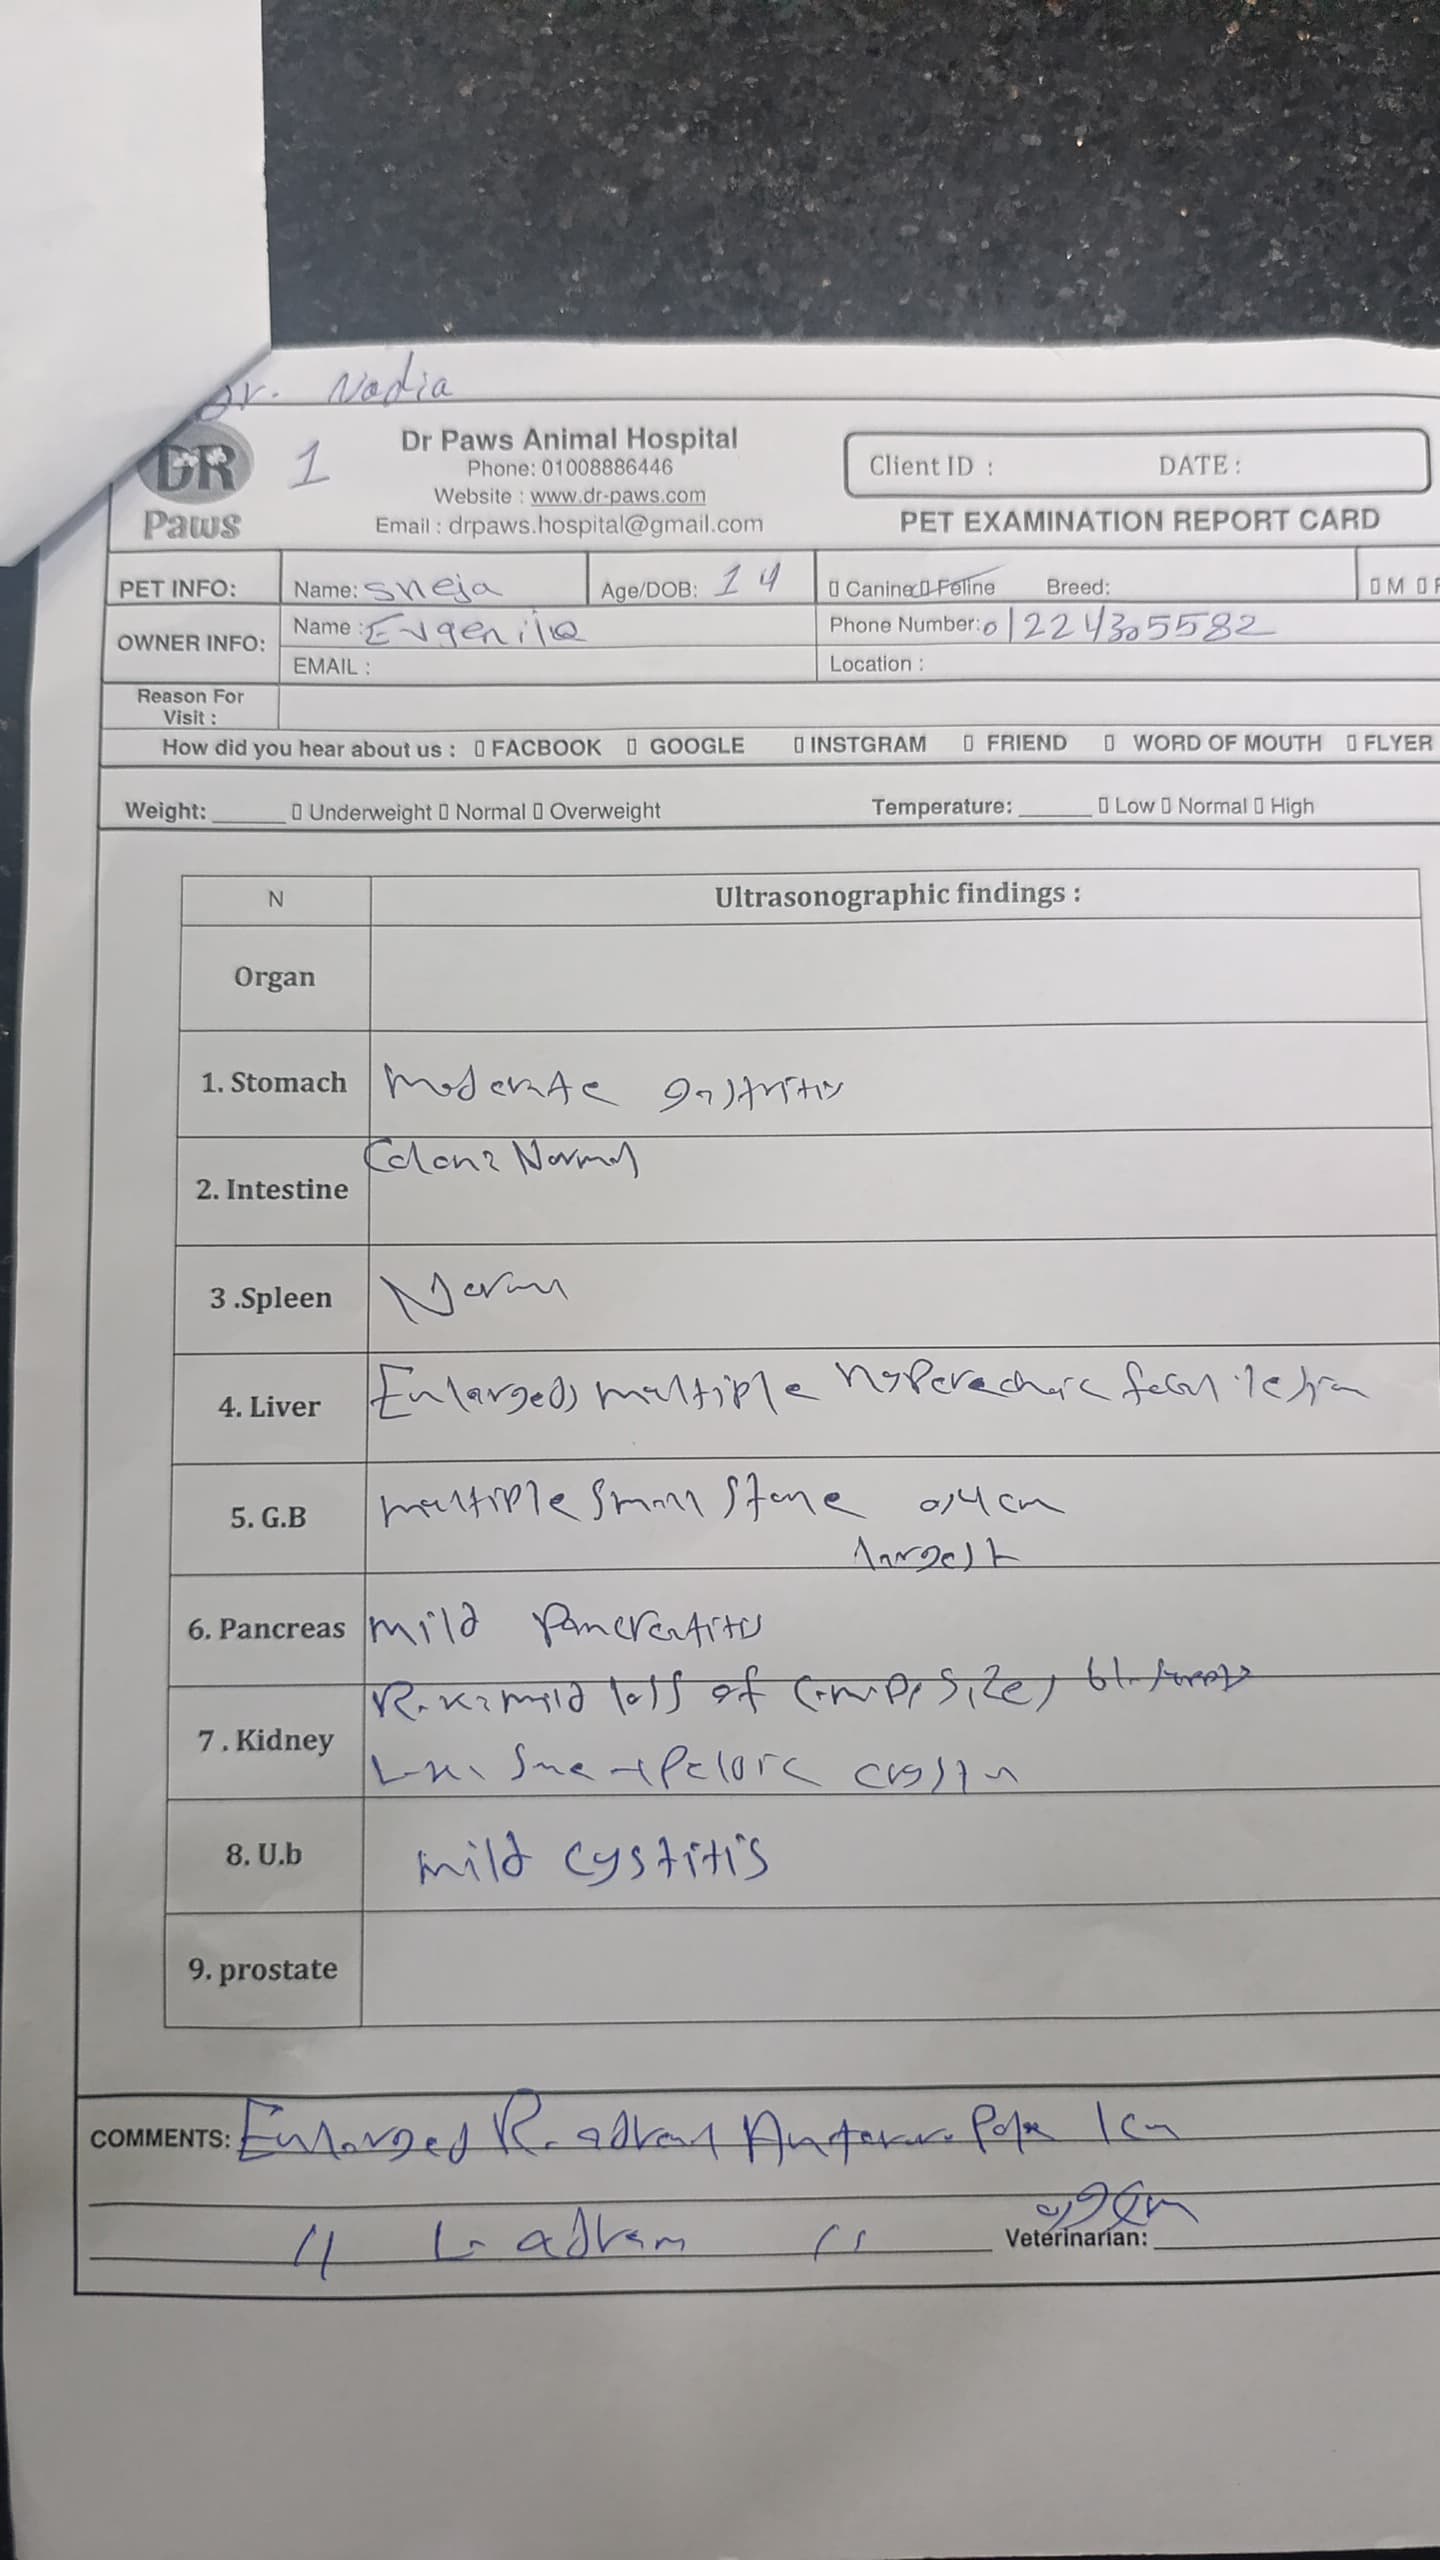 Dr. Nadia
DR
Paws
1
Dr Paws Animal Hospital
Phone: 01008886446
Website : www.dr-paws.com
Email : drpaws.hospital@gmail.com
Client ID : DATE :
PET EXAMINATION REPORT CARD
PET INFO: Name: Sneja Age/DOB: 14 Canine Feline Breed: M
OWNER INFO: Name : Evgeniia Phone Number: 01224305582
EMAIL : Location :
Reason For
Visit :
How did you hear about us : FACBOOK GOOGLE INSTGRAM FRIEND WORD OF MOUTH FLYER
Weight: Underweight Normal Overweight Temperature: Low Normal High
N Ultrasonographic findings :
Organ
1. Stomach moderate gastritis
2. Intestine Colon: Normal
3 .Spleen Normal
4. Liver Enlarged, multiple hyperechoic focal lesion
5. G.B multiple small stone 0,4 cm
largest
6. Pancreas mild Pancreatitis
7 . Kidney R.K: mild loss of size,
L.K: Same +
8. U.b mild cystitis
9. prostate
COMMENTS: Enlarged R. adrenal Pole 1cm
" L. adrenal " 0,9 cm
Veterinarian: